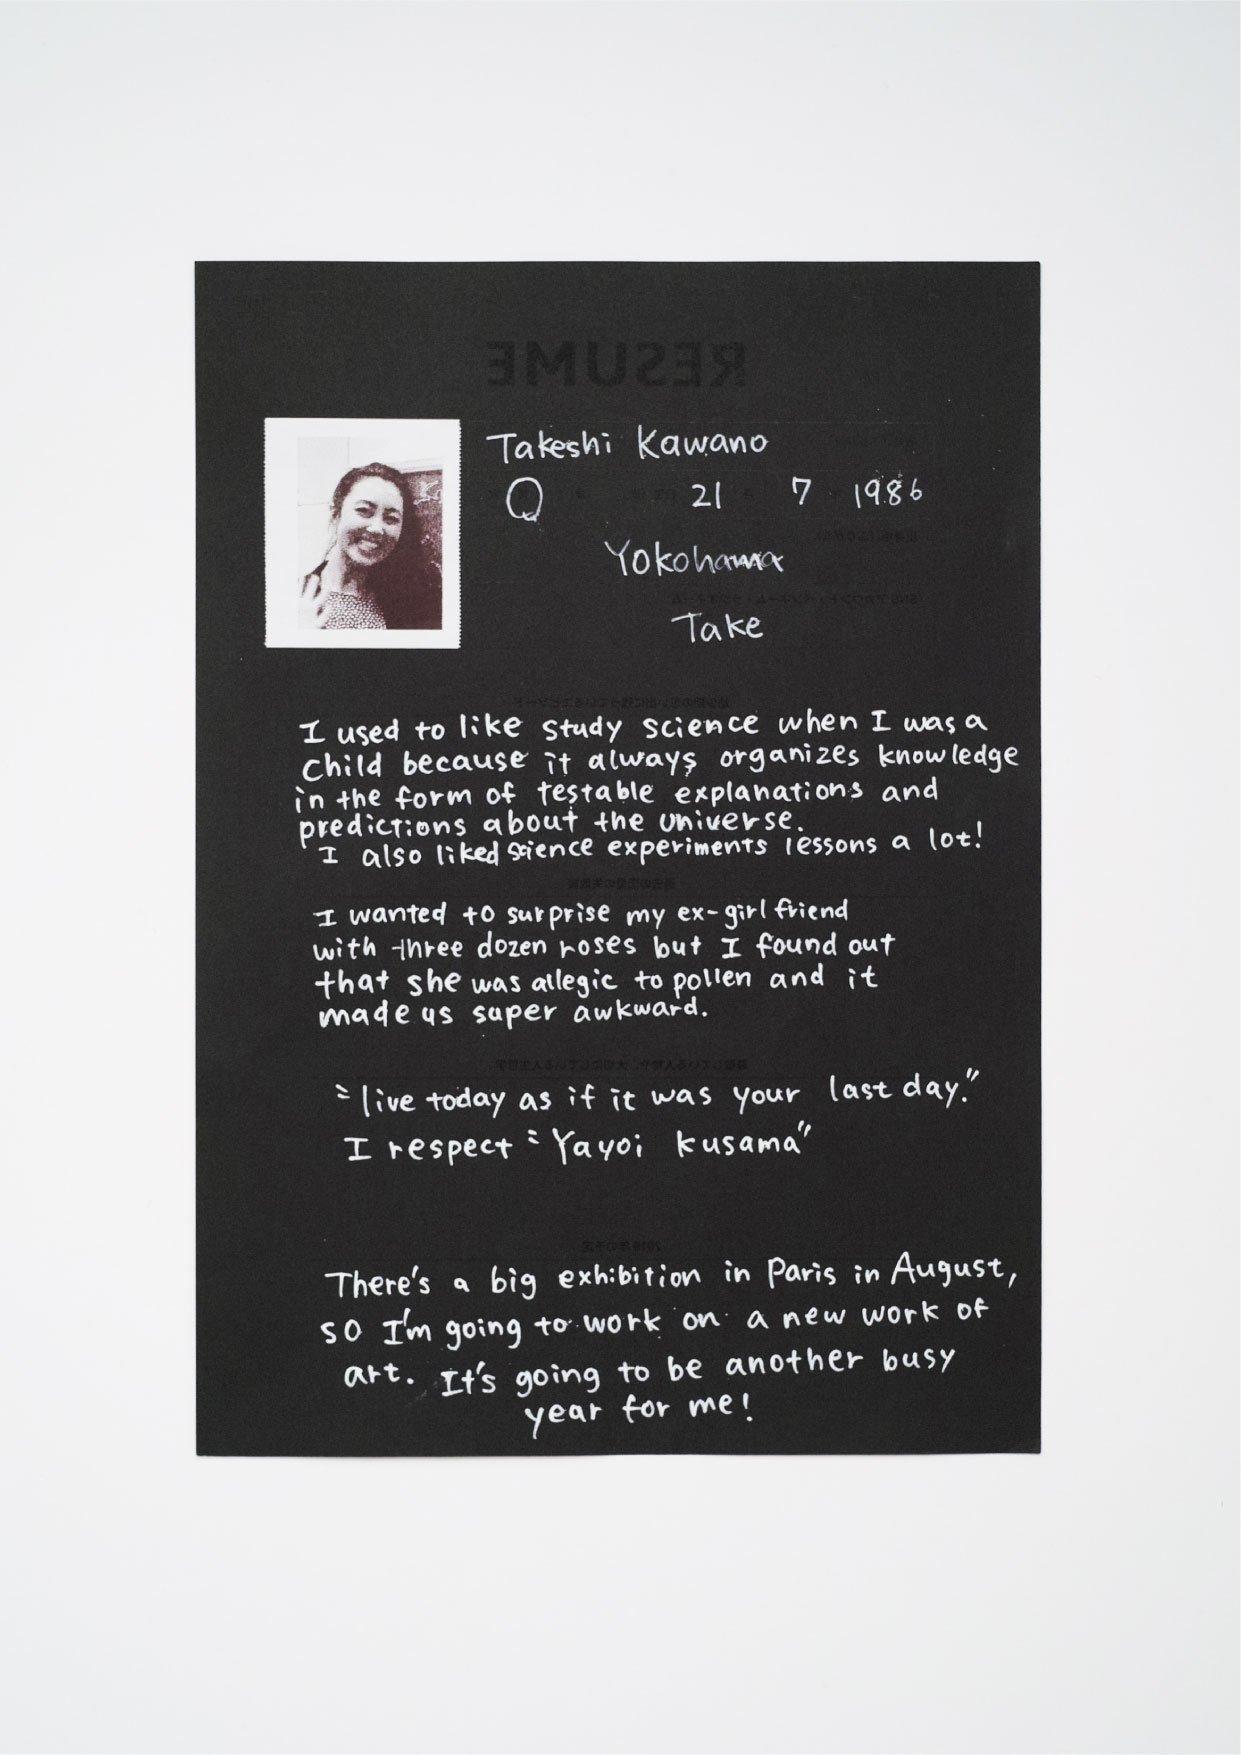 RESUME
Takeshi Kawano
21 7 1986
Yokohama
Take
I used to like study science when I was a
child because it always organizes knowledge
in the form of testable explanations and
predictions about the universe.
I also liked science experiments lessons a lot!
I wanted to surprise my ex-girlfriend
with three dozen roses but I found out
that she was allegic to pollen and it
made us super awkward.
"live today as if it was your last day."
I respect "Yayoi Kusama"
There's a big exhibition in Paris in August,
so I'm going to work on a new work of
art. It's going to be another busy
year for me!